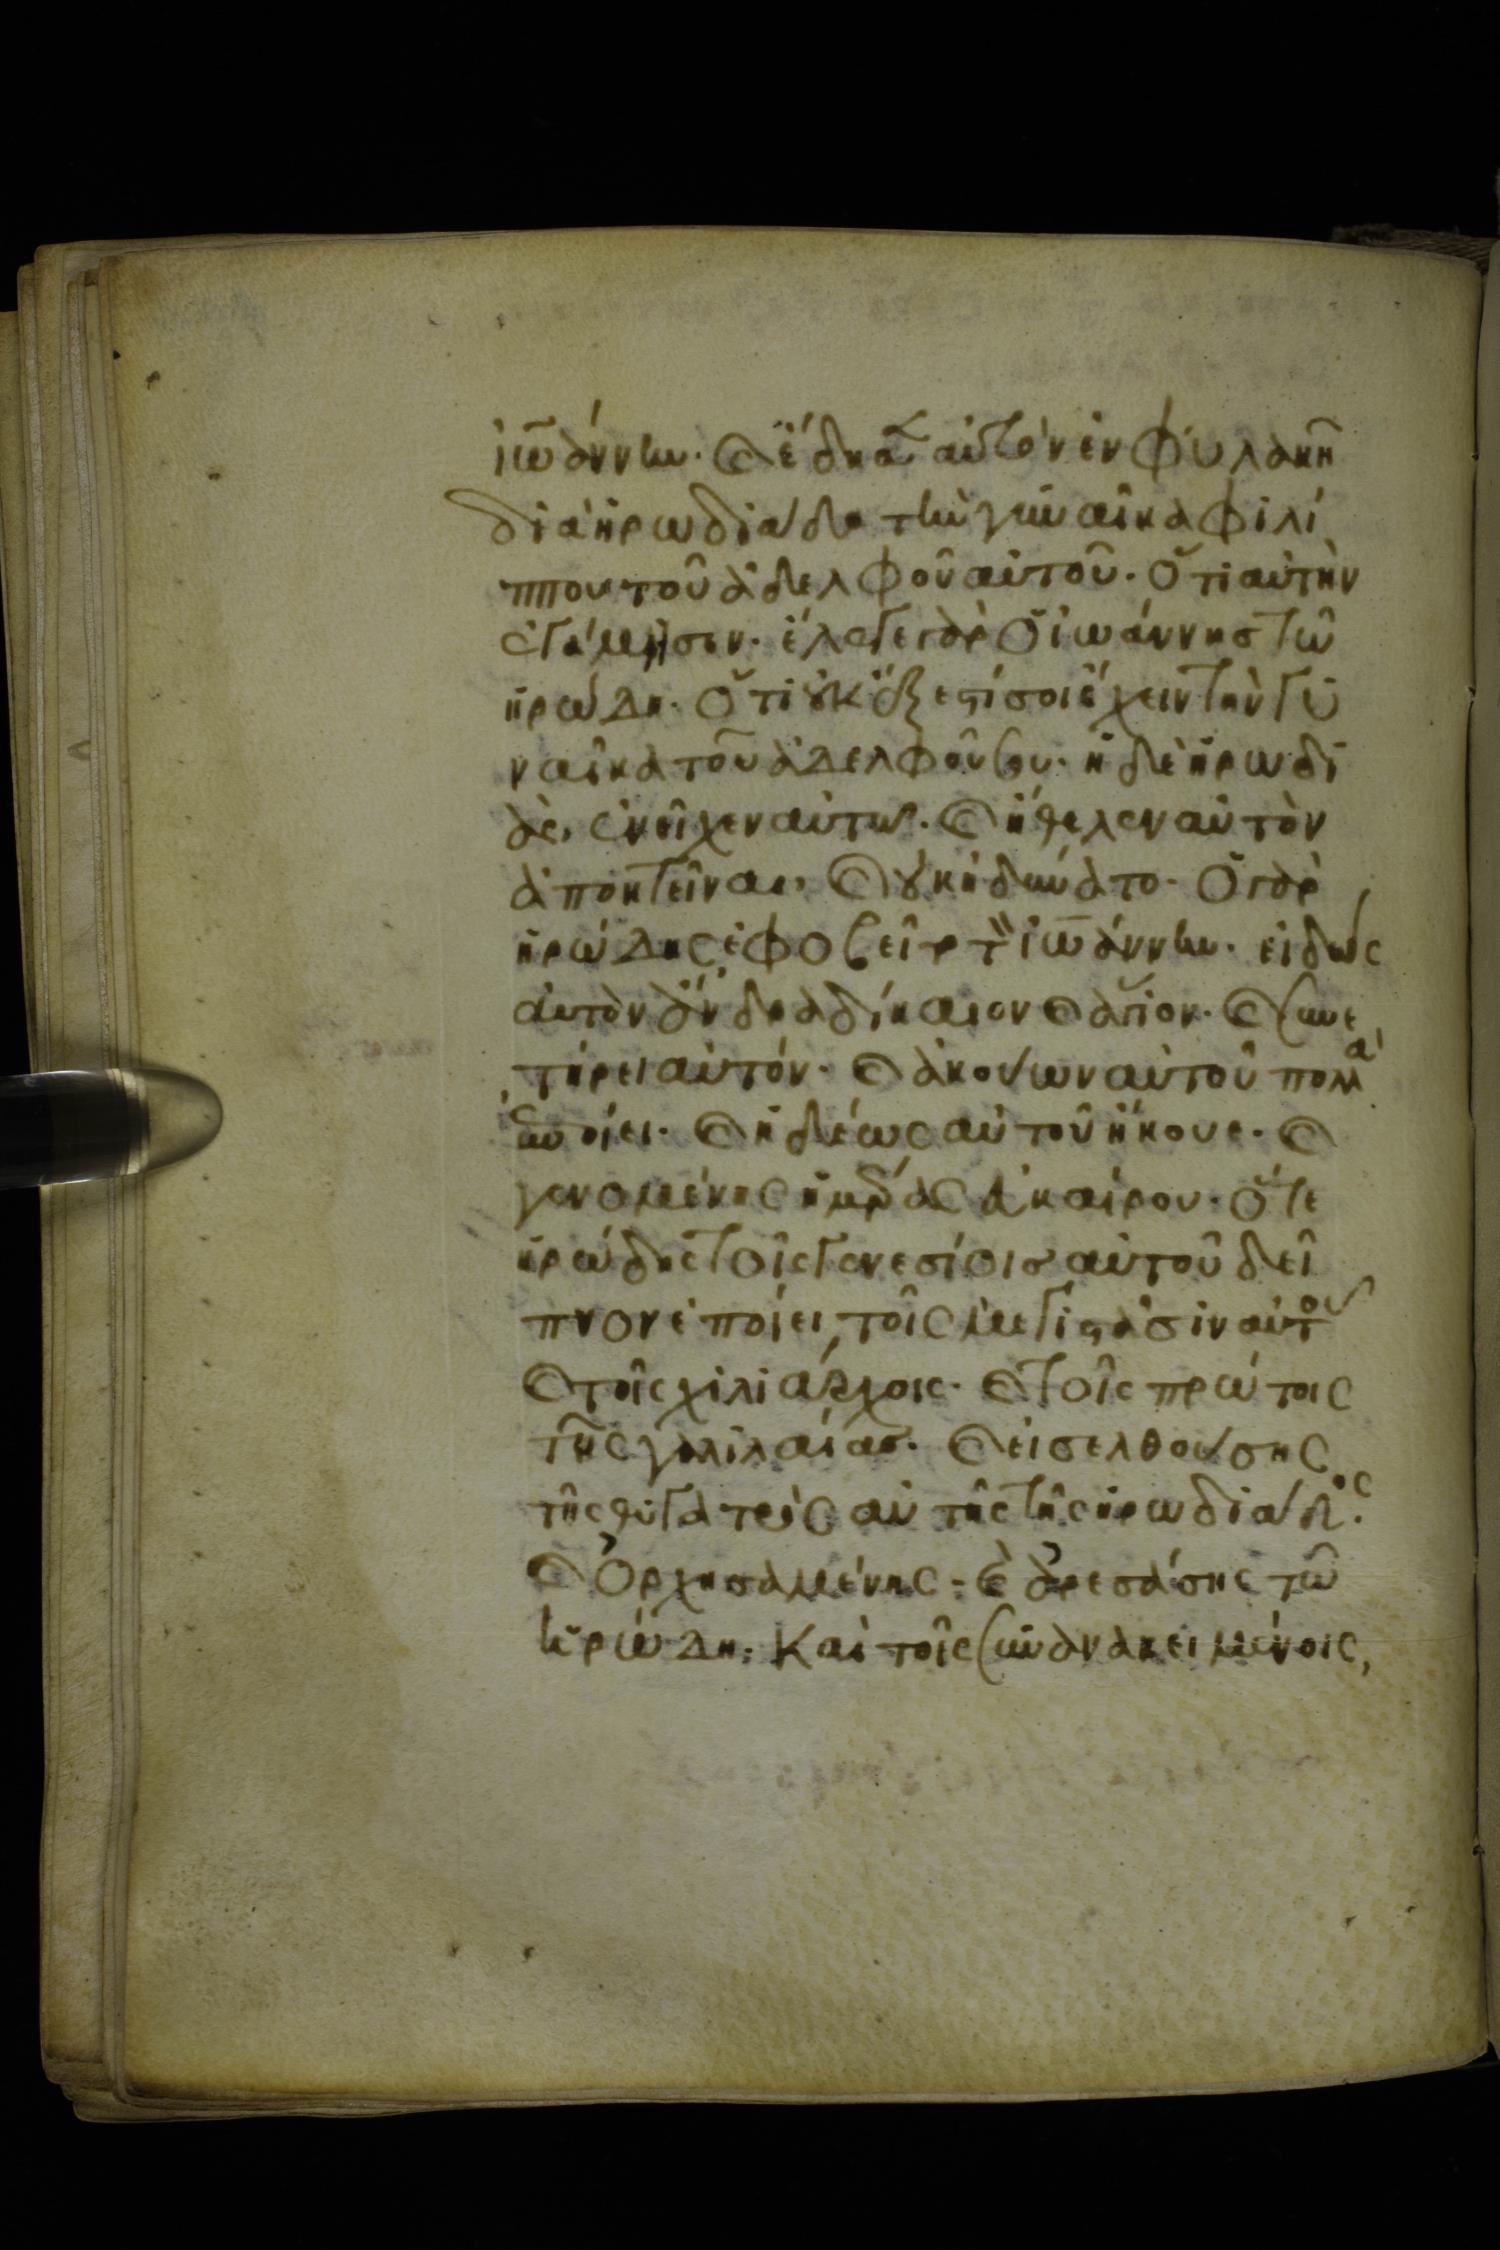 ἰωάννην. καὶ ἔδησεν αὐτὸν ἐν φυλακῆ
διὰ ἡρωδιάδα τὴν γυναῖκα φιλί
ππου τοῦ ἀδελφοῦ αὐτοῦ. ὅτι αὐτὴν
ἐγάμησεν. ἔλεγε γὰρ ὁ ἰωάννησ τῶ
ἡρώδη. ὅτι οὐκ ἔξεστί σοι ἔχειν τὴν γυ
ναῖκα τοῦ ἀδελφοῦ σου. ἡ δὲ ἡρωδι
ὰς, ἐνεῖχεν αὐτῶ. καὶ ἤθελεν αὐτὸν
ἀποκτεῖναι, καὶ οὐκ ἠδύνατο. ὁ γὰρ
ἡρώδης ἐφοβεῖτο τὸν ἰωάννην. εἰδὼς
αὐτὸν ἄνδρα δίκαιον καὶ ἅγιον. καὶ συνε
τήρει αὐτόν. καὶ ἀκούων αὐτοῦ πολλὰ
ἐποίει. καὶ ἡδέως αὐτοῦ ἤκουε. καὶ
γενομένης ἡμέρας εὐκαίρου. ὅτε
ἡρώδης τοῖς γενεσίοις αὐτοῦ δεῖ
πνον ἐποίει, τοῖς μεγιστᾶσιν αὐτοῦ
καὶ τοῖς χιλιάρχοις. καὶ τοῖς πρώτοις
τῆς γαλιλαίας. καὶ εἰσελθούσης
τῆς θυγατρὸς αὐτῆς τῆς ἡρωδιάδος.
καὶ ὀρχησαμένης. καὶ ἀρεσάσης τῶ
ἡρώδη. καὶ τοῖς συνανακειμένοις,